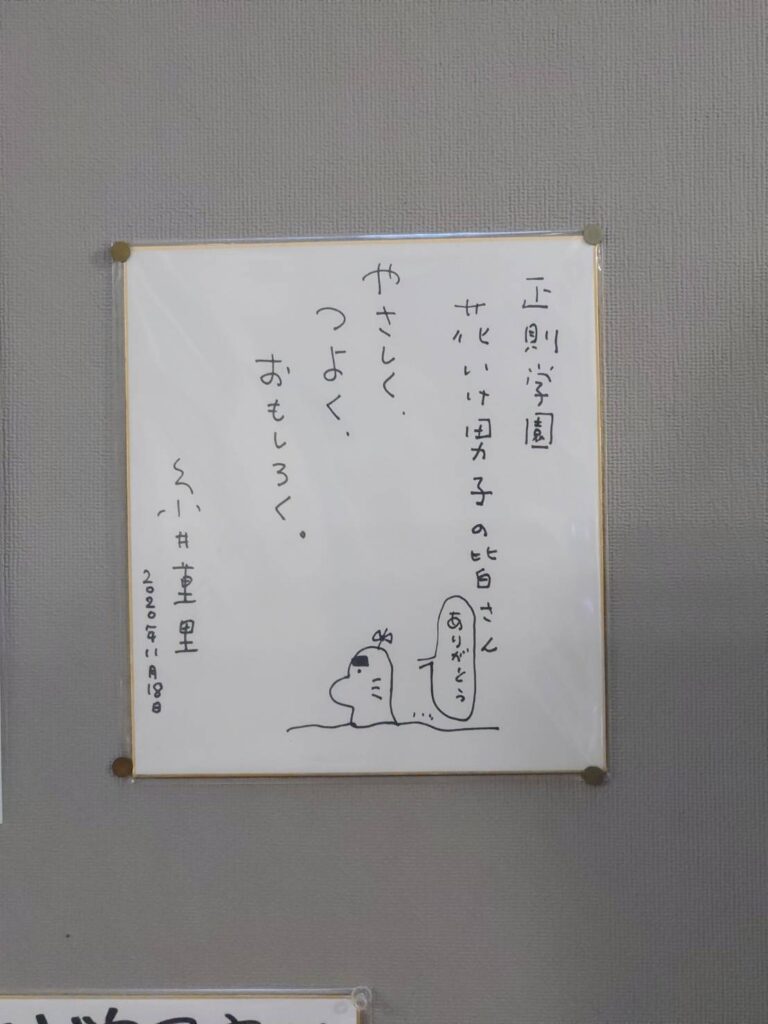 正則学園
花いけ男子の皆さん
やさしく、
つよく、
おもしろく。
糸井重里
2020年11月18日
ありがとう